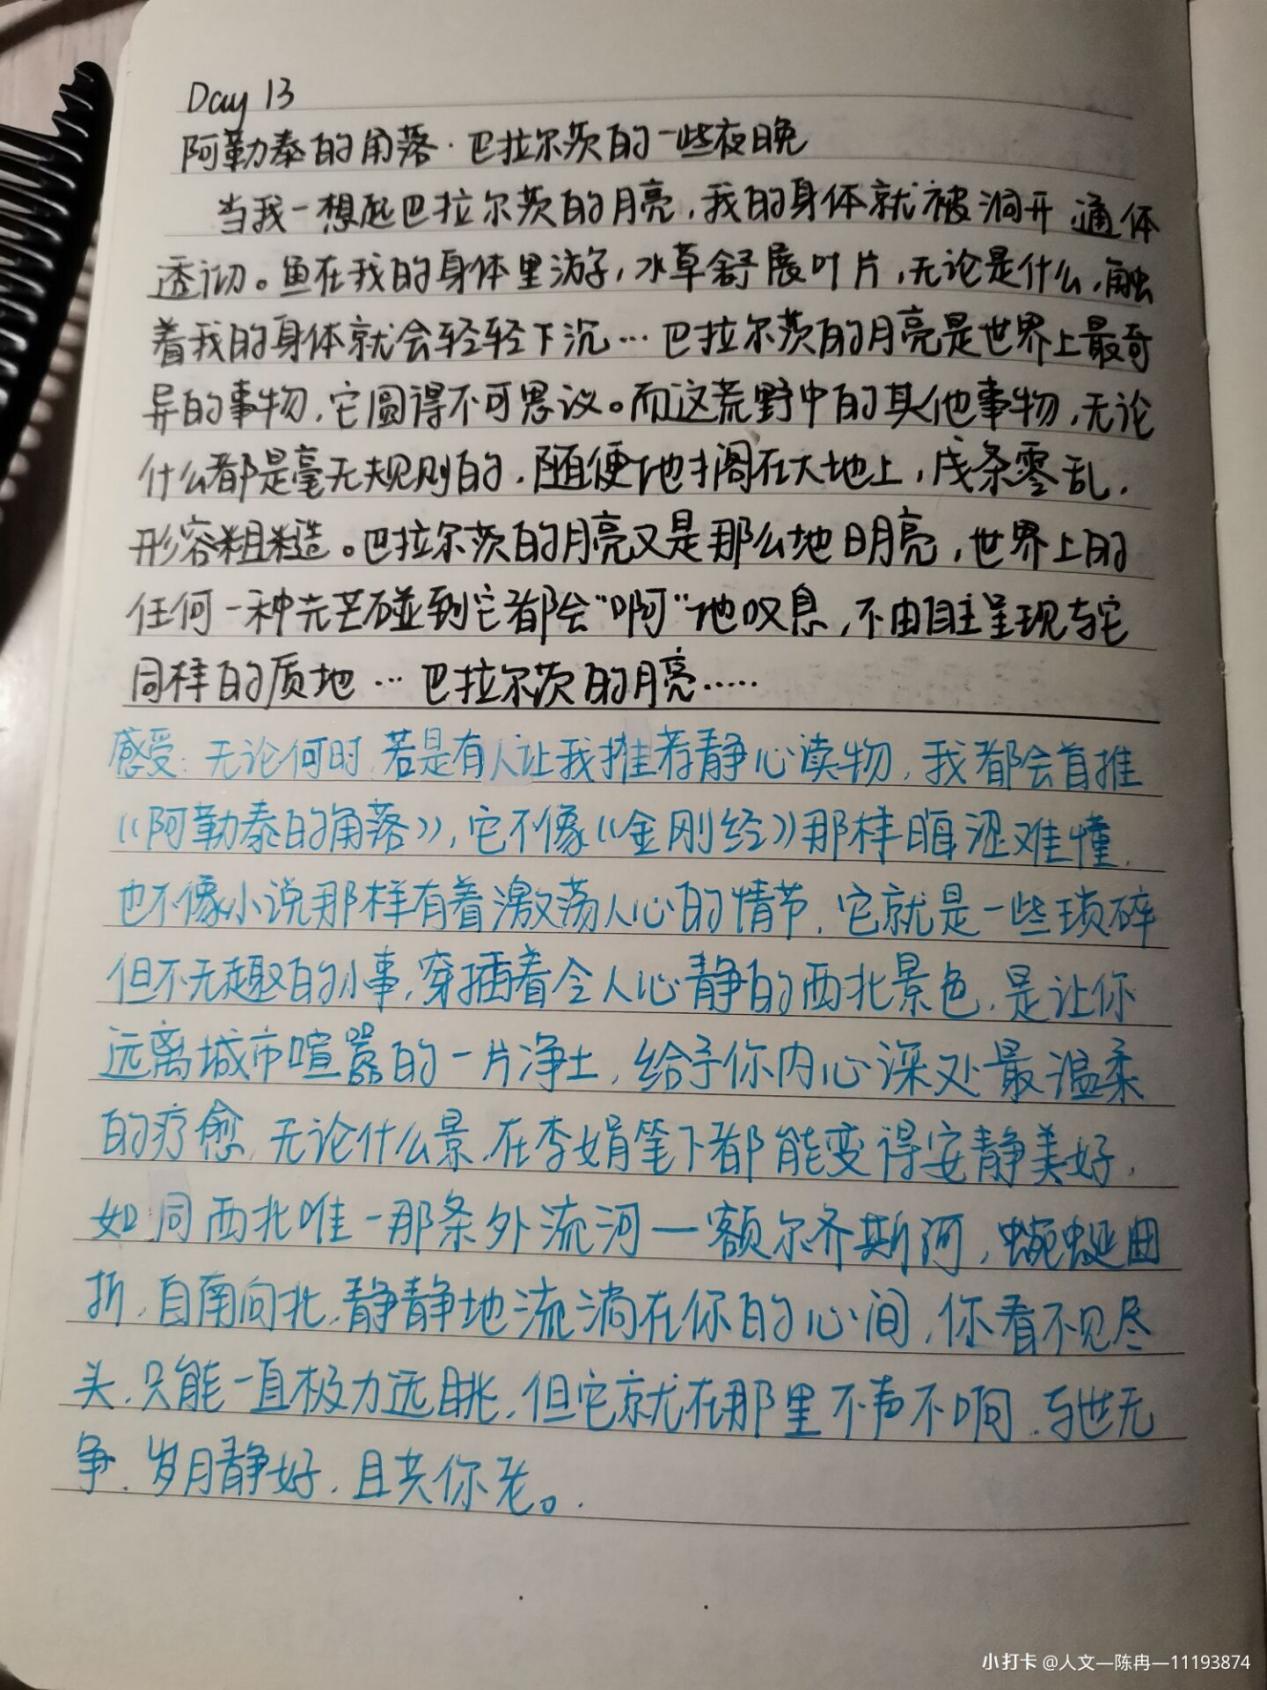 Day 13
阿勒泰的角落·巴拉尔茨的一些夜晚
当我一想起巴拉尔茨的月亮，我的身体就被洞开 通体
透彻。鱼在我的身体里游弋，水草舒展叶片，无论是什么，触
着我的身体就会轻轻下沉…巴拉尔茨的月亮是世界上最奇
异的事物，它圆得不可思议。而这荒野中的其他事物，无论
什么都是毫无规则的，随便地搁在大地上，线条零乱，
形容粗糙。巴拉尔茨的月亮又是那么地明亮，世界上的
任何一种光芒碰到它都会“啊”地叹息，不由自主呈现与它
同样的质地…巴拉尔茨的月亮……
感受：无论何时，若是有人让我推荐静心读物，我都会首推
《阿勒泰的角落》，它不像《金刚经》那样晦涩难懂，
也不像小说那样有着激荡人心的情节，它就是一些琐碎
但不无趣的小事，穿插着令人心静的西北景色，是让你
远离城市喧嚣的一片净土，给予你内心深处最温柔
的疗愈，无论什么景，在李娟笔下都能变得安静美好，
如同西北唯一那条外流河—额尔齐斯河，蜿蜒曲
折，自南向北，静静地流淌在你的心间，你看不见尽
头，只能一直极力远眺，但它就在那里不声不响，与世无
争，岁月静好，且共你老。
小打卡 @人文—陈冉—11193874